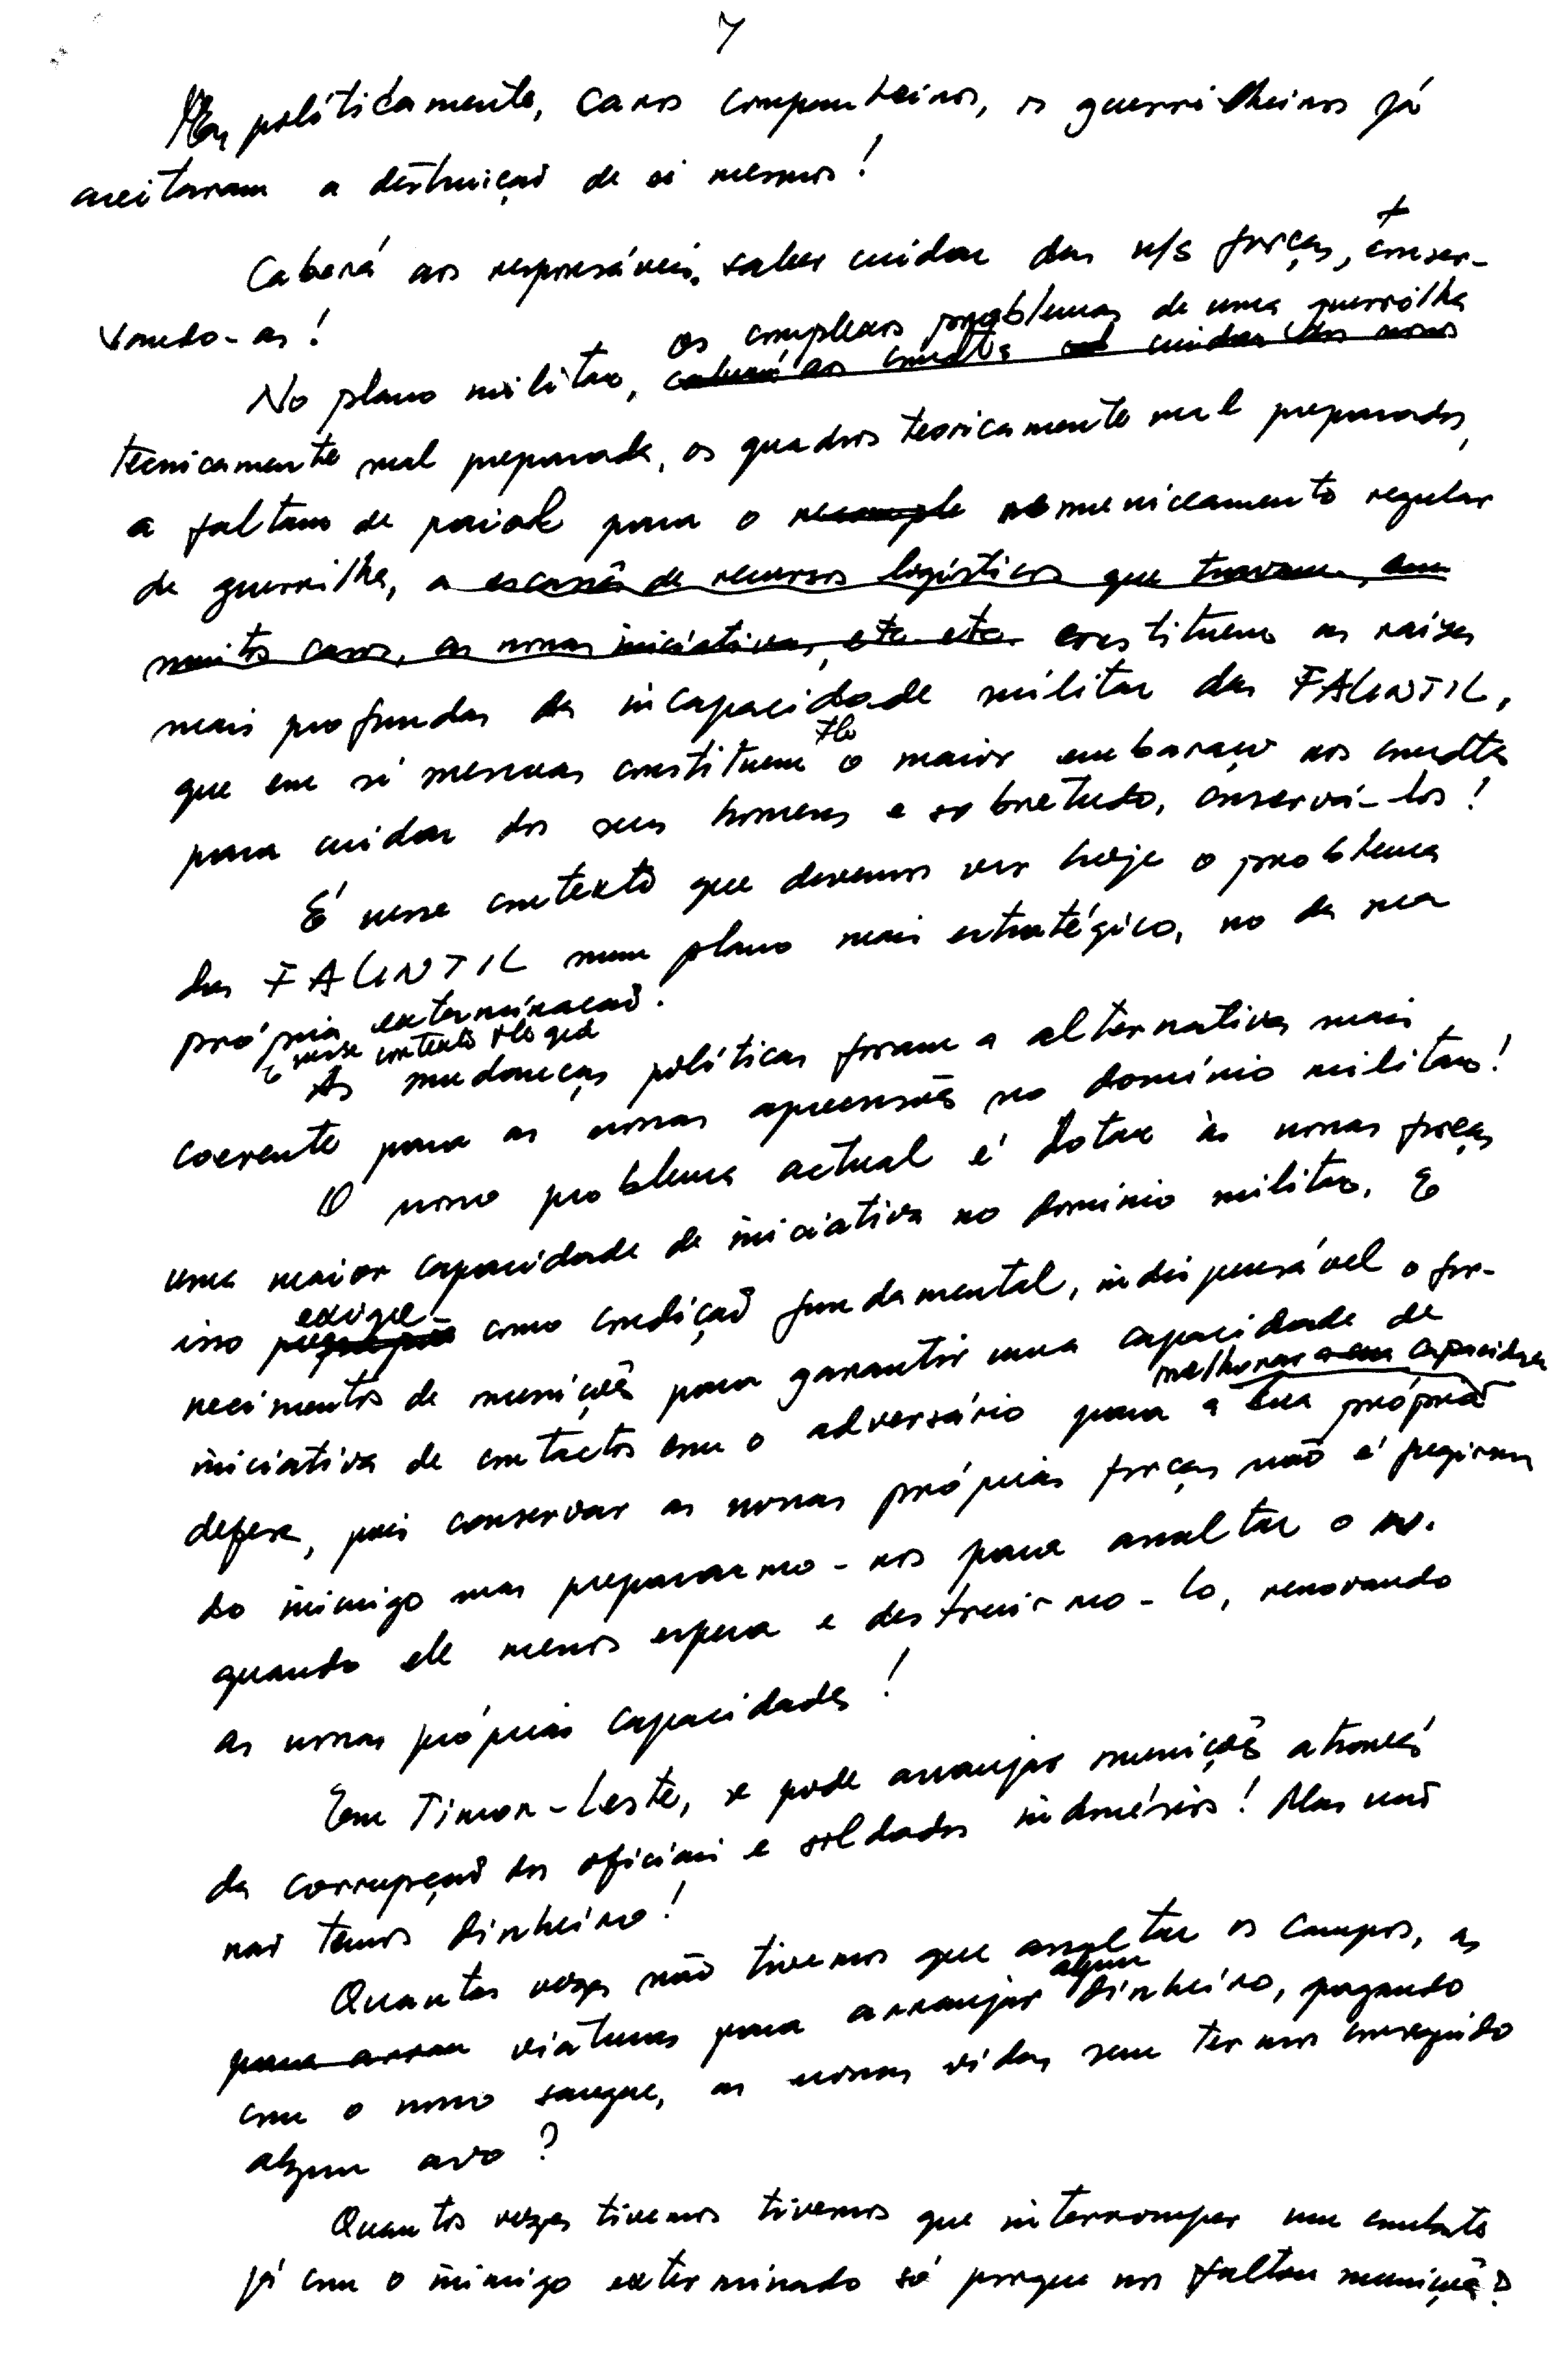 7
Mas políticamente, caros companheiros, os guerrilheiros já
aceitaram a destruição de si mesmos!
Caberá aos responsáveis saber cuidar das n/s forças, conser-
vando-as!
os complexos problemas de uma guerrilha
No plano militar, caberá aos cmdtes cuidar dos nossos
técnicamente mal preparada, os quadros teoricamente mal preparados,
a falta de paiol para o remuniciamento regular
de guerrilha, a escassês de recursos logísticos que travam, em
muitos casos, as nossas iniciativas, etc etc. constituem as raízes
mais profundas da incapacidade militar das FALINTIL,
que em si mesmas constituem tb o maior embaraço aos cmdtes
para cuidar dos seus homens e sobretudo, conservá-los!
É nesse contexto que devemos ver hoje o problema
das FALINTIL num plano mais estratégico, no da sua
própria exterminação.
E nesse contexto
As mudanças políticas foram a alternativa mais
coerente para as nossas apreensões no domínio militar!
O nosso problema actual é dotar às nossas forças
uma maior capacidade de iniciativa no domínio militar. E
exige-
isso como condição fundamental, indispensável o for-
necimentos de munições para garantir uma capacidade de
melhorar a sua capacidade
iniciativa de contactos com o adversário para a sua própria
defesa, pois conservar as nossas próprias forças não é fugirmos
do inimigo mas prepararmo-nos para assaltar o in.
quando ele menos espera e destruirmo-lo, renovando
as nossas próprias capacidades!
Em Timor-Leste, se pode arranjar munições através
da corrupção dos oficiais e soldados indonésios! Mas nós
não temos dinheiro!
Quantas vezes não tivemos que assaltar os campos, as
algum
para arran viaturas para arranjar dinheiro, pagando
com o nosso sangue, as nossas vidas sem termos conseguido
algum avo?
Quantas vezes tivemos tivemos que interromper um combate
já com o inimigo exterminado só porque nos faltou munições?